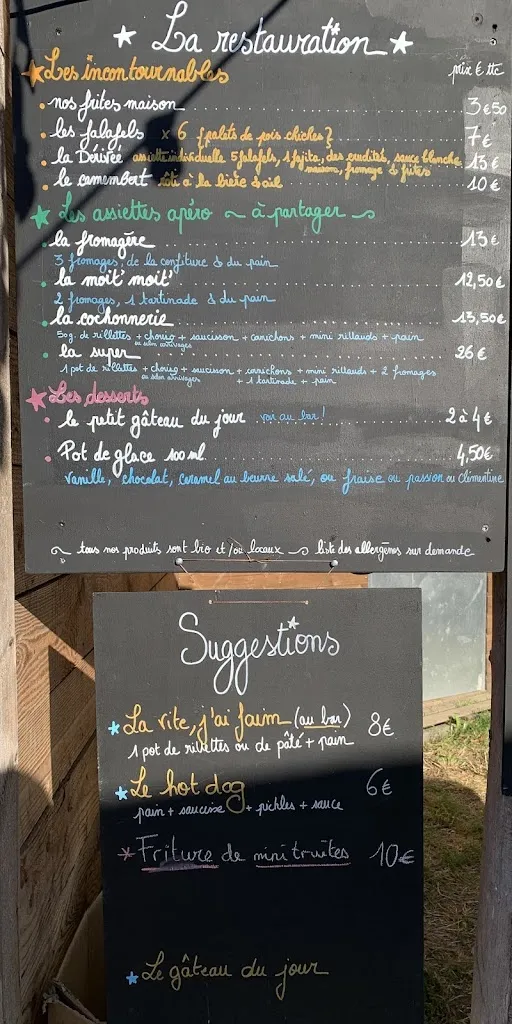 La restauration
Les incontournables prix € ttc
nos frites maison 3€50
les falafels x 6 {palets de pois chiches} 7€
la Dérivée assiette individuelle 5 falafels, 1 fajita, des crudités, sauce blanche 13€
maison, fromage & frites
le camembert rôti à la bière & ail 10€
Les assiettes apéro ~ à partager ~
la fromagère 13€
3 fromages, de la confiture & du pain
la moit' moit' 12,50€
2 fromages, 1 tartinade & du pain
la cochonnerie 13,50€
50g de rillettes + chorizo + saucisson + cornichons + mini rillauds + pain
ou selon arrivages
la super 26€
1 pot de rillettes + chorizo + saucisson + cornichons + mini rillauds + 2 fromages
ou selon arrivages + 1 tartinade + pain
Les desserts
le petit gâteau du jour voir au bar! 2 à 4€
Pot de glace 100 ml 4,50€
vanille, chocolat, caramel au beurre salé, ou fraise ou passion ou clémentine
~ tous nos produits sont bio et/ou locaux ~ liste des allergènes sur demande
Suggestions
La vite, j'ai faim (au bar) 8€
1 pot de rillettes ou de pâté + pain
Le hot dog 6€
pain + saucisse + pickles + sauce
Friture de mini truites 10€
Le gâteau du jour